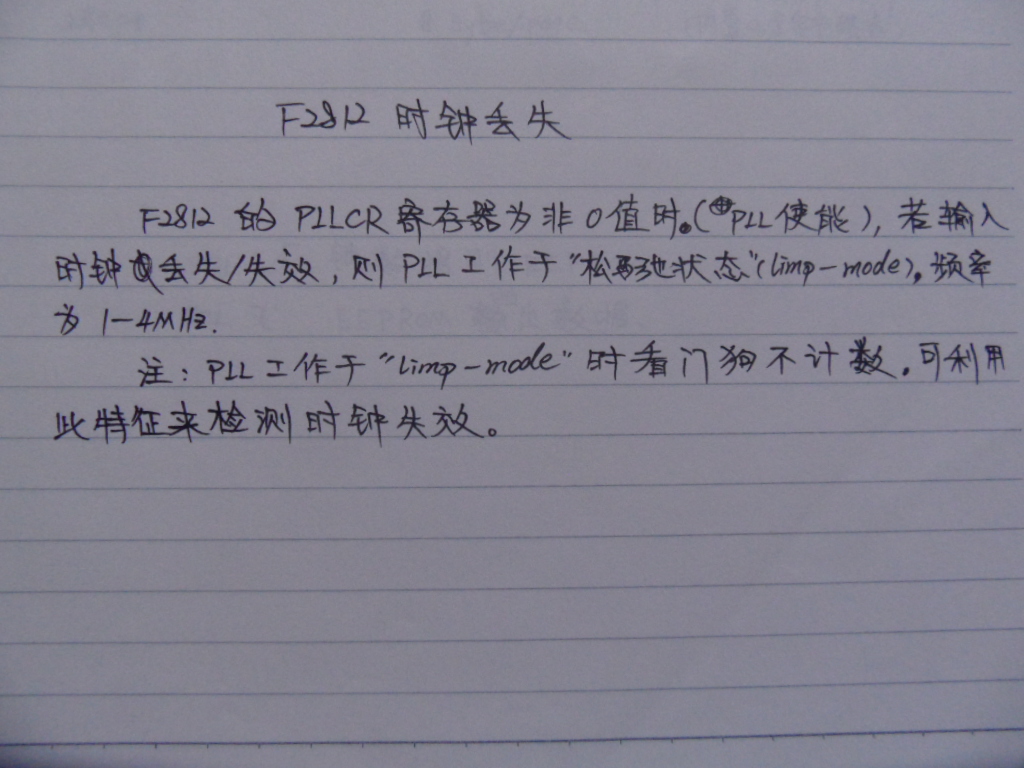 F2812 时钟丢失
F2812 的 PLLCR 寄存器为非0值时。(PLL使能),若输入
时钟丢失/失效,则 PLL 工作于"松弛状态"(limp-mode),频率
为 1-4MHz.
注:PLL工作于"limp-mode"时看门狗不计数。可利用
此特征来检测时钟失效。